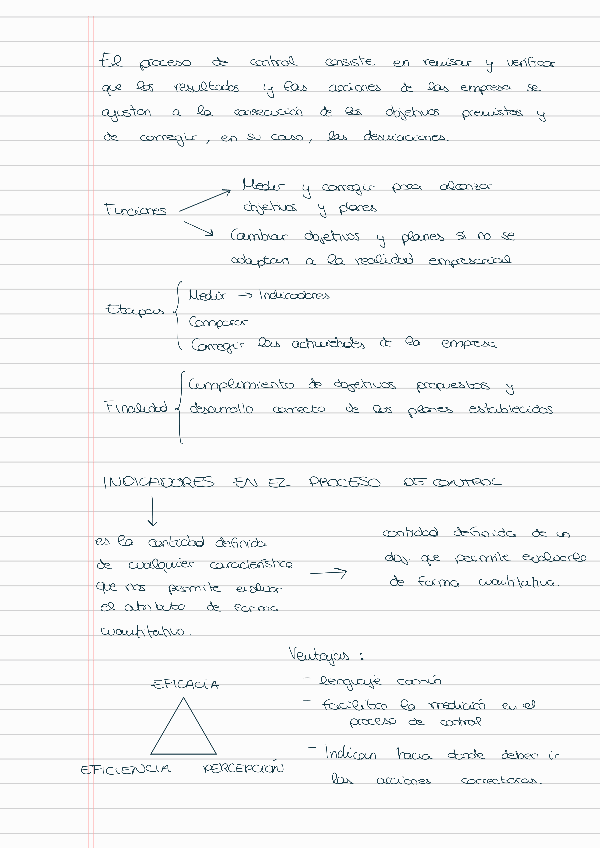 El proceso de control consiste en revisar y verificar
que los resultados y las acciones de las empresa se
ajustan a la consecución de los objetivos previstos y
de corregir, en su caso, las desviaciones.
Funciones
Medir y corregir para alcanzar
objetivos y planes
Cambiar objetivos y planes si no se
adaptan a la realidad empresarial
Etapas
Medir → Indicadores
Comparar
Corregir las actividades de la empresa
Finalidad
Cumplimiento de objetivos propuestos y
desarrollo correcto de los planes establecidos
INDICADORES EN EL PROCESO DE CONTROL
es la cantidad definida
de cualquier característica
que nos permite evaluar
el atributo de forma
cuantitativo.
cantidad definida de un
obj. que permite evaluarlo
de forma cuantitativa.
Ventajas:
- lenguaje común
- Facilitan la medición en el
proceso de control
- Indican hacia donde deben ir
las acciones correctoras.
EFICACIA
EFICIENCIA PERCEPCIÓN